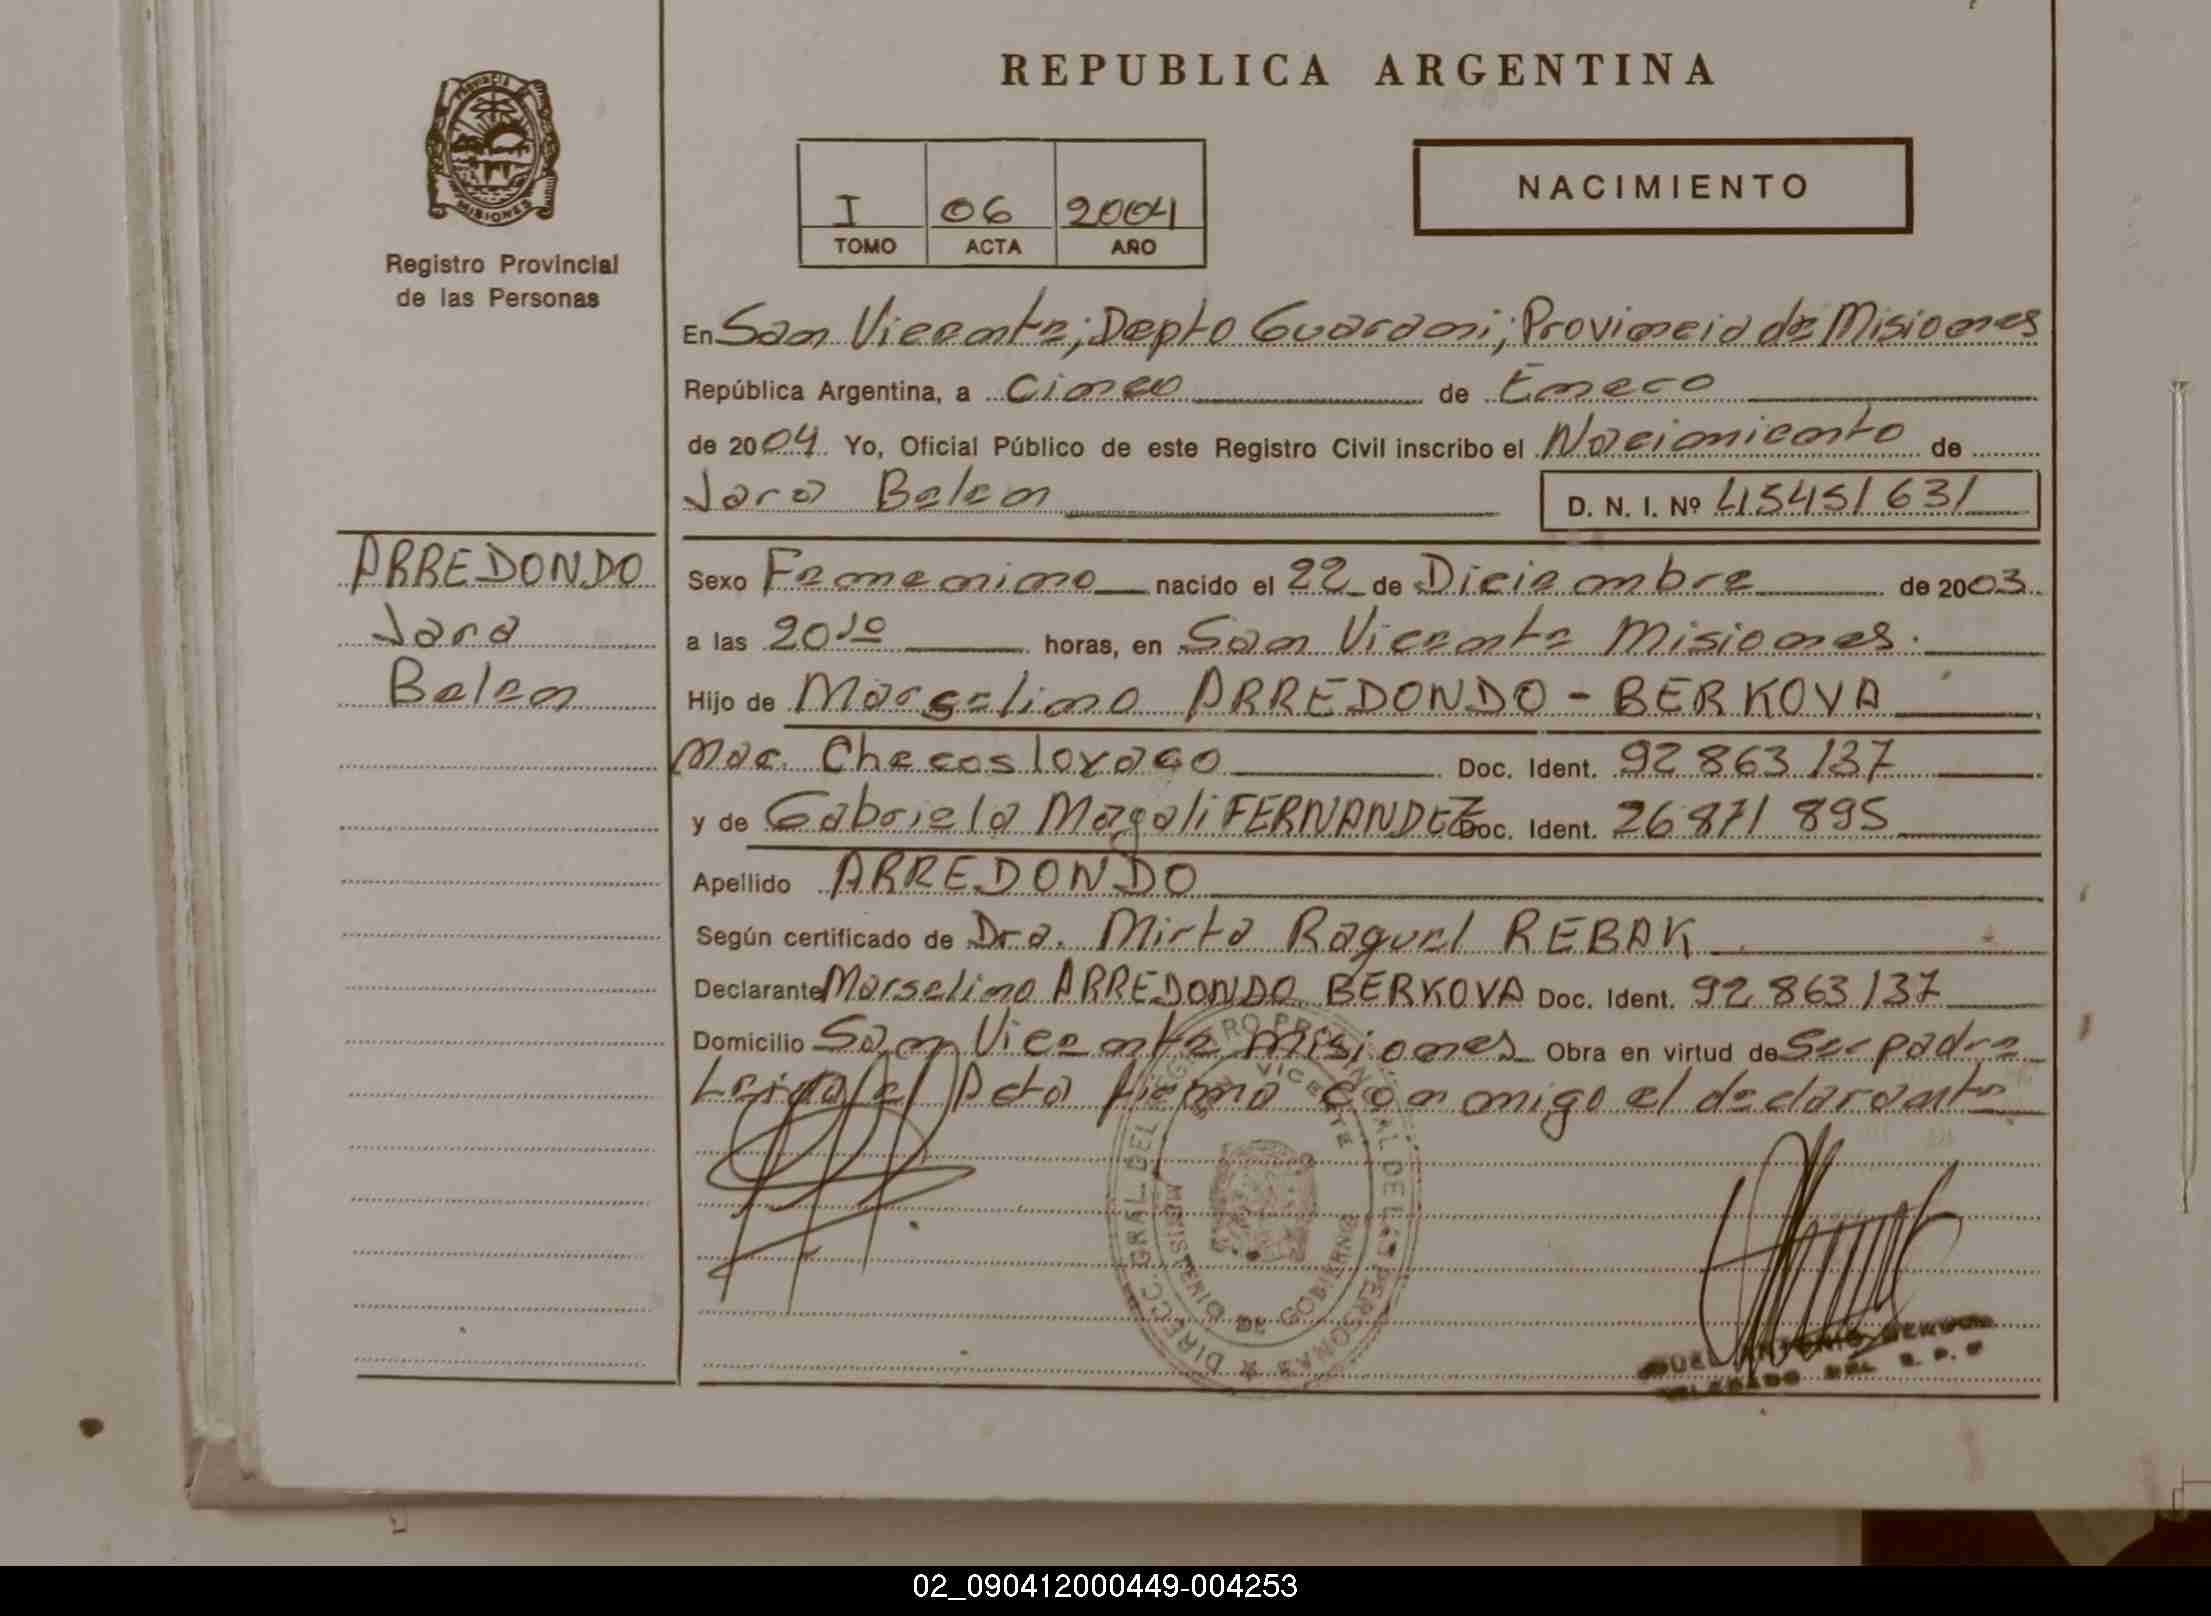 REPUBLICA ARGENTINA
PROVINCIA
MISIONES
Registro Provincial
de las Personas
I 06 2004
TOMO ACTA AÑO
NACIMIENTO
En San Vicente; Depto Guarani; Provincia de Misiones
República Argentina, a Cinco de Enero
de 2004 Yo, Oficial Público de este Registro Civil inscribo el Nacimiento de
Jara Belen D. N. I. Nº 45451631
ARREDONDO
Jara
Belen
Sexo Femenino nacido el 22 de Diciembre de 2003
a las 20 10 horas, en San Vicente Misiones.
Hijo de Marselino ARREDONDO - BERKOVA
Nac. Checoslovaco Doc. Ident. 92 863 137
y de Gabriela Magali FERNANDEZ Doc. Ident. 26 871 895
Apellido ARREDONDO
Según certificado de Dra. Mirta Raquel REBAK
Declarante Marselino ARREDONDO BERKOVA Doc. Ident. 92 863 137
Domicilio San Vicente Misiones Obra en virtud de Ser padre
Leida el Acta firma conmigo el declarante
DIRECC. GRAL. DEL REGISTRO PROVINCIAL DE LAS PERSONAS
VICENTE
MINISTERIO DE GOBIERNO
ANTONIO
DELEGADO DEL R. P. P
02_090412000449-004253